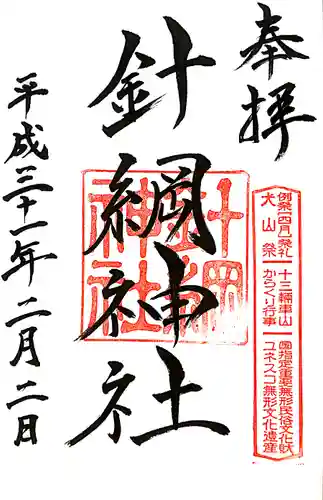 奉拝
例祭（四月）祭礼
犬山祭
十三輛車山
からくり行事
国指定重要無形民俗文化財
ユネスコ無形文化遺産
針綱神社
針綱
神社
平成三十一年二月二日